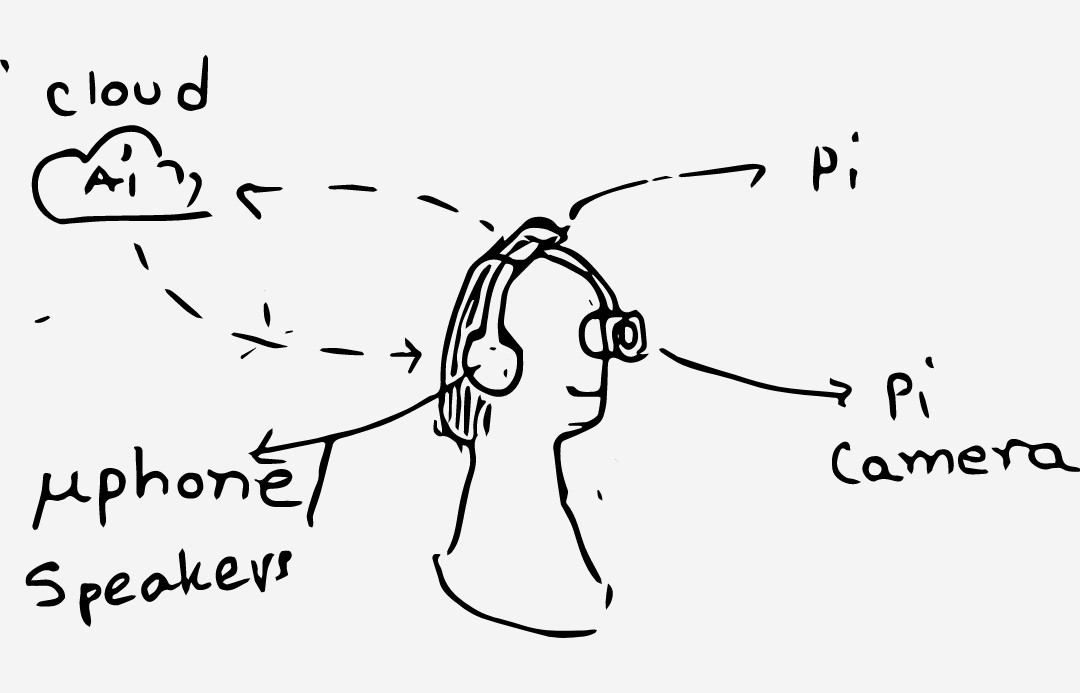 cloud
Ai
Pi
Pi
Camera
μphone/
Speakers